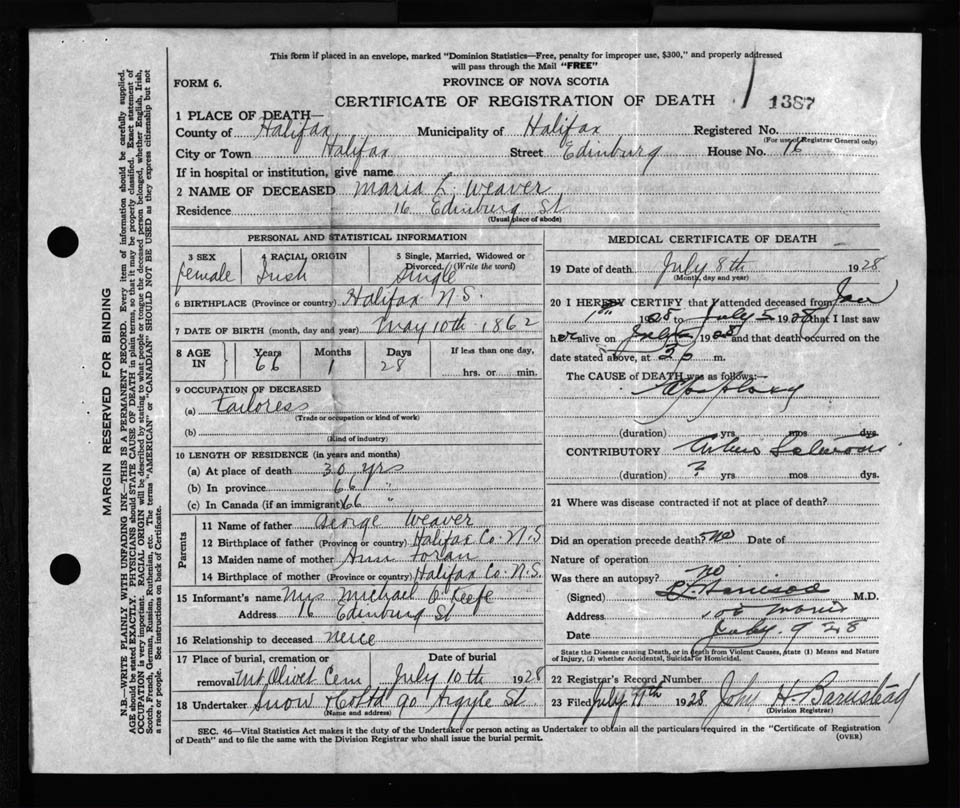 This form if placed in an envelope, marked "Dominion Statistics—Free, penalty for improper use, $300," and properly addressed
will pass through the Mail "FREE"
FORM 6.
PROVINCE OF NOVA SCOTIA
CERTIFICATE OF REGISTRATION OF DEATH
1387
1 PLACE OF DEATH—
County of Halifax, Municipality of Halifax Registered No.
(For use of Registrar General only)
City or Town Halifax Street Edinburg House No. 16
If in hospital or institution, give name
2 NAME OF DECEASED Maria L. Weaver
Residence 16 Edinburg St
(Usual place of abode)
PERSONAL AND STATISTICAL INFORMATION
3 SEX 4 RACIAL ORIGIN 5 Single, Married, Widowed or
Divorced. (Write the word)
female Irish Single
6 BIRTHPLACE (Province or country) Halifax N.S.
7 DATE OF BIRTH (month, day and year) May 10th 1862
8 AGE IN Years Months Days If less than one day,
66 1 28 hrs. or min.
9 OCCUPATION OF DECEASED
(a) tailoress
(Trade or occupation or kind of work)
(b)
(Kind of industry)
10 LENGTH OF RESIDENCE (in years and months)
(a) At place of death 30 yrs
(b) In province 66 "
(c) In Canada (if an immigrant) 66 "
Parents
11 Name of father George Weaver
12 Birthplace of father (Province or country) Halifax Co. N.S.
13 Maiden name of mother Ann Foran
14 Birthplace of mother (Province or country) Halifax Co. N.S.
15 Informant's name Mrs Michael O'Keefe
Address 16 Edinburg St
16 Relationship to deceased neice
17 Place of burial, cremation or Date of burial
removal Mt. Olivet Cem July 10th 1928
18 Undertaker Snow & Co Ltd 90 Argyle St.
(Name and address)
MEDICAL CERTIFICATE OF DEATH
19 Date of death July 8th 1928
(Month, day and year)
20 I HEREBY CERTIFY that I attended deceased from Jan
1st 1928 to July 1928 that I last saw
her alive on July 1928 and that death occurred on the
date stated above, at 3 p m.
The CAUSE of DEATH was as follows:—
Apoplexy
(duration) yrs mos dys.
CONTRIBUTORY Arterio Sclerosis
(duration) ? yrs mos dys.
21 Where was disease contracted if not at place of death?
Did an operation precede death? no Date of
Nature of operation
Was there an autopsy? no
(Signed) M.D.
Address Morris
Date July 9 28
State the Disease causing Death, or in death from Violent Causes, state (1) Means and Nature
of Injury, (2) whether Accidental, Suicidal or Homicidal.
22 Registrar's Record Number
23 Filed July 9th 1928 John H. Barnstead
(Division Registrar)
SEC. 46—Vital Statistics Act makes it the duty of the Undertaker or person acting as Undertaker to obtain all the particulars required in the "Certificate of Registration
of Death" and to file the same with the Division Registrar who shall issue the burial permit.
(OVER)
MARGIN RESERVED FOR BINDING
N.B.—WRITE PLAINLY WITH UNFADING INK—THIS IS A PERMANENT RECORD. Every item of information should be carefully supplied.
AGE should be stated EXACTLY. PHYSICIANS should STATE CAUSE OF DEATH in plain terms, so that it may be properly classified. Exact statement of
OCCUPATION is very important. RACIAL ORIGIN will be described by stating to what people or tongue the deceased person belonged, whether English, Irish,
Scotch, French, German, Russian, Ruthenian, etc. The terms "AMERICAN" or "CANADIAN" SHOULD NOT BE USED as they express citizenship but not
a race or people. See instructions on back of Certificate.